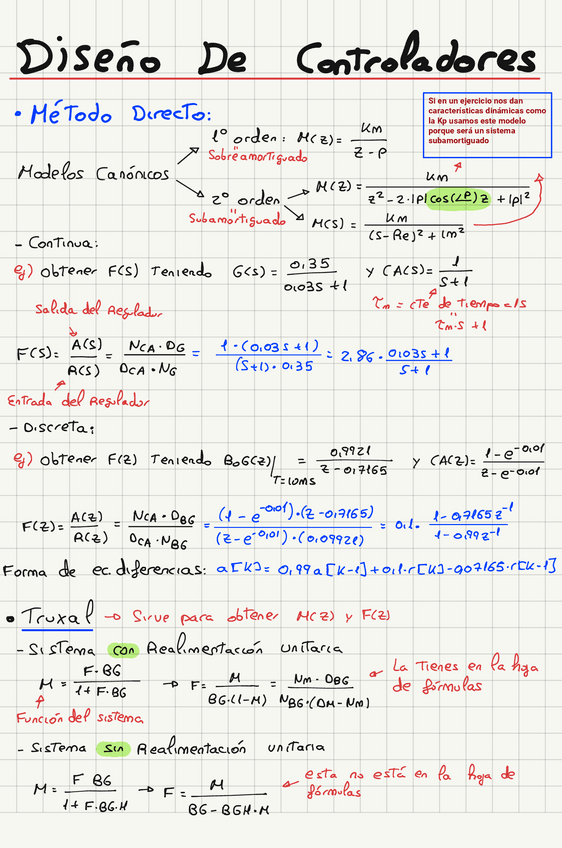 Diseño De Controladores
• Método Directo:
Si en un ejercicio nos dan
características dinámicas como
la Kp usamos este modelo
porque será un sistema
subamortiguado
Modelos Canónicos
1º orden: M(z) = Km / (z - p)
Sobreamortiguado
2º orden
Subamortiguado
M(z) = Km / (z² - 2·|p|cos(∠p)z + |p|²)
M(s) = Km / ((s - Re)² + Im²)
- Continua:
ej) obtener F(s) Teniendo G(s) = 0,35 / (0,03s + 1) y CA(s) = 1 / (s + 1)
τm = cte de tiempo = 1s
τm·s + 1
Salida del Regulador
F(s) = A(s) / R(s) = NCA·DG / DCA·NG = 1·(0,03s + 1) / (s+1)·0,35 = 2,86· (0,03s + 1) / (s + 1)
Entrada del Regulador
- Discreta:
ej) obtener F(z) Teniendo BoG(z)| T=10ms = 0,9921 / (z - 0,7165) y CA(z) = (1 - e^-0,01) / (z - e^-0,01)
F(z) = A(z) / R(z) = NCA·DBG / DCA·NBG = (1 - e^-0,01)·(z - 0,7165) / (z - e^-0,01)·(0,09921) = 0,1· (1 - 0,7165z^-1) / (1 - 0,99z^-1)
Forma de ec. diferencias: a[k] = 0,99a[k-1] + 0,1·r[k] - 0,07165·r[k-1]
• Truxal → Sirve para obtener M(z) y F(z)
- Sistema con Realimentación unitaria
M = F·BG / (1 + F·BG) → F = M / BG·(1-M) = Nm·DBG / NBG·(DM - Nm)
La Tienes en la hoja
de fórmulas
Función del sistema
- Sistema sin Realimentación unitaria
M = F BG / (1 + F·BG·H) → F = M / (BG - BGH·M)
esta no está en la hoja de
fórmulas